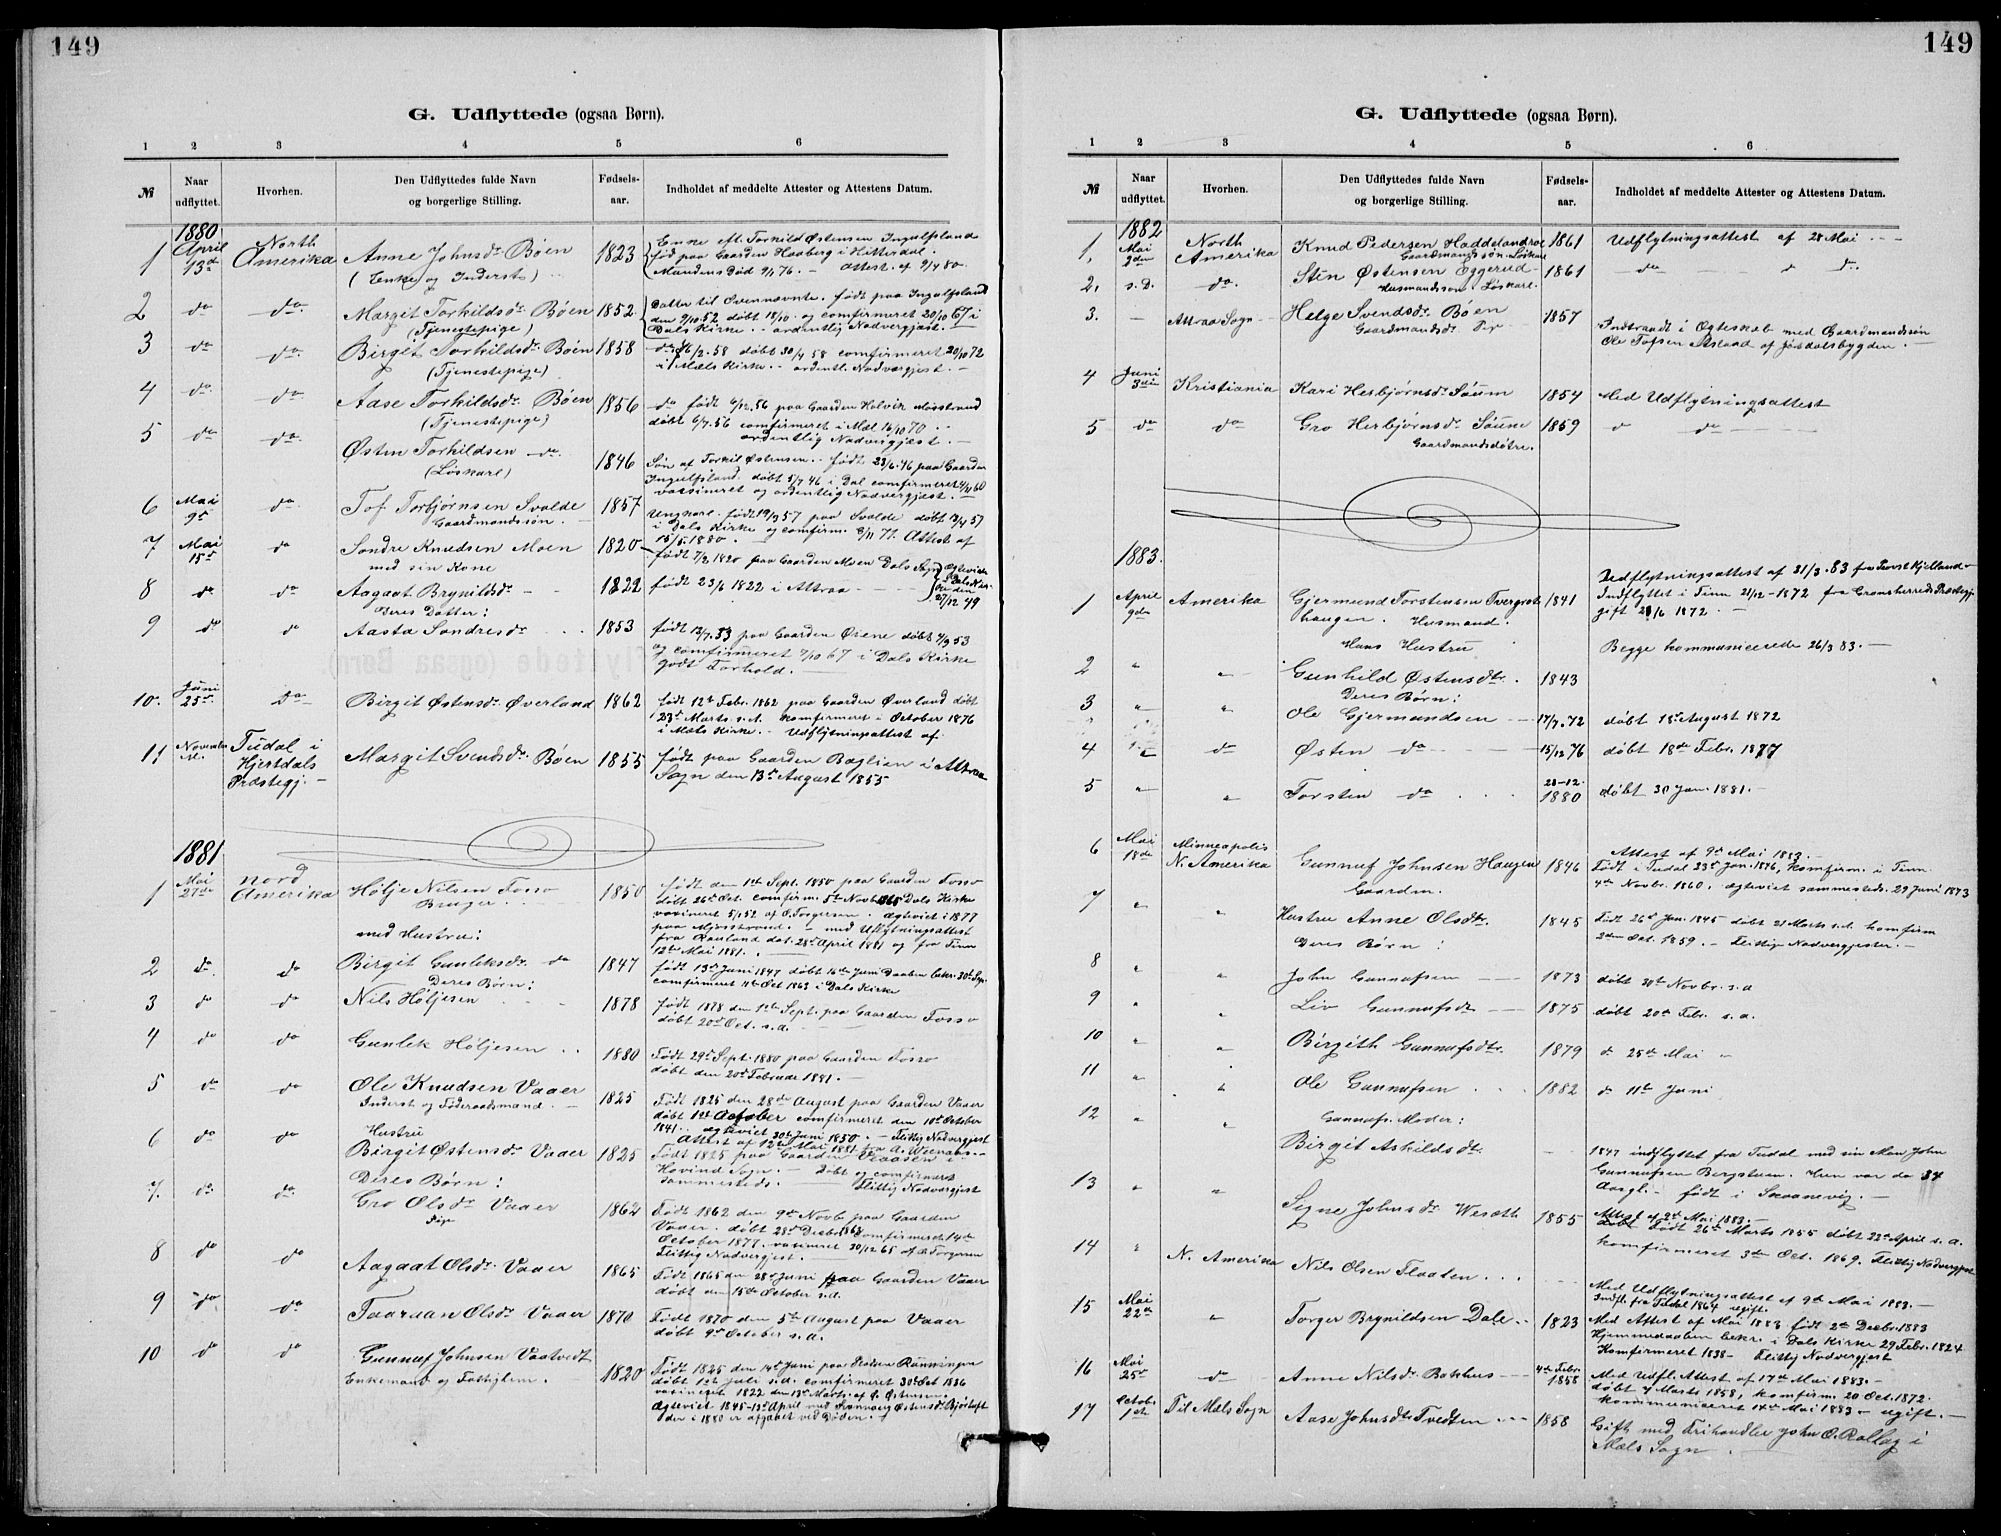 149
G. Udflyttede (ogsaa Børn).
1 2 3 4 5 6
№ Naar udflyttet. Hvorhen. Den Udflyttedes fulde Navn og borgerlige Stilling. Fødsels-aar. Indholdet af meddelte Attester og Attestens Datum.
1880
1 April 13de North Amerika Anne Johnsdr. Bøen 1823 Enke Torkild Østensen Ingulfsland
(Enke og Inderst) født paa Gaarden Haaberg i Hitterdal
Mandens Død 9/1 76. — Attest af 9/4 80.
2 do do Margit Torkildsdr. Bøen 1852 Datter til Ovennævnte. født paa Ingulfsland
(Tjenestepige) den 9/10 52 døbt 18/10 og comfirmeret 20/10 67 i
Dals Kirke. — ordentlig Nadvergjest. —
3 do do Birgit Torkildsdr. Bøen 1858 døbt 30/4 58 comfirmeret 20/10 72
(Tjenestepige) i Mæls Kirke. — ordentl. Nadvergjest. —
4 do do Aase Torkildsdr. Bøen 1856 do født paa Gaarden Holvik Møsstrand
(Tjenestepige) døbt 6/7 56 comfirmeret i Mæl 16/10 70
ordentlig Nadvergjest. —
5 do do Østen Torkildsen do 1846 Søn af Torkil Østensen. født 23/6 46 paa Gaarden
(Løskarl) Ingulfsland. døbt 5/7 46 i Dal comfirmeret 60
vassineret og ordentlig Nadvergjæst. —
6 Mai 9de do Tof Torbjørnsen Svalde 1857 Ungkarl. født 19/3 57 paa Svalde døbt 13/4 57
Gaardmandssøn. — i Dals Kirke og comfirm. 71. Attest af
15/5 1880. —
7 Mai 15de do Sondre Knudsen Moen 1820 født 7/2 1820 paa Gaarden Moen Dals Sogn
med sin Kone
8 do do Aagaat Brynildsdr. 1822 født 23/6 1822 i Attraa
27/12 49
Deres Datter:
9 do do Aasta Sondresdr. 1853 født 13/7 53 paa Gaarden Ørene døbt 7/9 53
og comfirmeret 67 i Dals Kirke
godt Forhold. —
10. Juni 25de do Birgit Østensdr. Øverland 1862 født 12te Febr. 1862 paa Gaarden Øverland døbt
23de Marts s.A. komfirmeret i October 1876
i Mæls Kirke. — Udflytningsattest af
11 Novembr. Tudal i Margit Svendsdr. Bøen 1855 født paa Gaarden Baglien i Attraa
Hjertdals Sogn den 13de August 1855
Præstegj. —
1881
1 Mai 27de nord Amerika Høljé Nilsen Fosso 1850 født den 1ste Sept. 1850 paa Gaarden Fosso
Bruger døbt 26de Oct. comfirm. 5te Novb. 1865 Dals Kirke
vaxineret 5/1 52 af O. Torgersen. Ægteviet i 1877
paa Mjøsstrand. — med Udflytningsattest
med Hustru: fra Rauland dat. 28de April 1881 og fra Tinn
12te Mai 1881. —
2 do do Birgit Gunleksdr. do 1847 født 13de Juni 1847 døbt 16de Juni Daaben bekr. 30te Sep.
comfirmeret 11te Oct 1863 i Dals Kirke
Deres Børn:
3 do do Nils Høljesen 1878 født 1878 den 1ste Sept. paa Gaarden Fosso
døbt 20de Oct. s.a.
4 do do Gunlek Høljesen 1880 Født 29de Sept. 1880 paa Gaarden Fosso
døbt den 20de Februar 1881. —
5 do do Ole Knudsen Vaaer 1825 Født 1825 den 28de August paa Gaarden Vaaer
Inderst og Føderaadsmand. — døbt 1ste October comfirmeret den 10de October
1841. Ægteviet 30te Juni 1850. — Flittig Nadvergjest
Attest af 12te Mai 1881
6 do do Hustru
Birgit Østensdr. Vaaer 1825 Født 1825 paa Gaarden Flaasen i
Hovind Sogn. — Døbt og comfirmeret
Sammesteds. — Flittig Nadvergjest
Deres Børn:
7. do do Gro Olsdr. Vaaer 1862 Født 1862 den 9de Novb. paa Gaarden
Pige Vaaer. døbt 28de Decbr. 1862 Comfirmeret 14de
October 1877. vaxineret 30/12 65 af O. Torgersen
Flittig Nadvergjest.
8 do do Aagaat Olsdr. Vaaer 1865 Født 1865 den 28de Juni paa Gaarden Vaaer
døbt den 15de October s.d.
9 do do Taaraan Olsdr. Vaaer 1870 Født 1870 den 5te August paa Vaaer
døbt 9de October s.a.
10 do do Gunnuf Johnsen Vaatvedt 1820 Født 1825 den 14de Juni paa Pladsen Rønningen
Enkemand og Fattiglem. — døbt 1ste Juli s.d. comfirmeret 30te Oct 1836
vaxineret 1822 den 13de Marts af O. Østensen
Ægteviet 1845 13de April med Svanaug Østensdr. Bjørtuft
der i 1880 er afgaaet ved Døden. —
149
G. Udflyttede (ogsaa Børn).
1 2 3 4 5 6
№ Naar udflyttet. Hvorhen. Den Udflyttedes fulde Navn og borgerlige Stilling. Fødsels-aar. Indholdet af meddelte Attester og Attestens Datum.
1882
1, Mai 2den North Amerika Knud Pedersen Haddelandroe 1861 Udflytningsattest af 28 Mai
Gaardmandssøn. Løskarl
2, s.D. do. Stén Østensen Eggerud 1861 do do
Husmandssøn. Løskarl.
3. — Attraa Sogn Helge Svendsdr. Bøen 1857 Indtraadt i Ægteskab med Gaardmandssøn
Gaardmandsdr. Pige Ole Tofsen Aslaad af Jøndalsbygden. —
4 Juni 3die Kristiania Kari Herbjørnsdr. Søum 1854 Med Udflytningsattest
5 do do Gro Herbjørnsdr. Søum 1859 do
Gaardmandsdøtre.
1883.
1 April 9de Amerika Gjermund Torstensen Tvergrot- 1841 Udflytningsattest af 21/3. 83 fra Provst Kjelland —
haugen. Husmand. Indflyttet i Tinn 21/12 – 1872 fra Gransherreds Præstegj.
gift 21/6 1872. —
Hans Hustru Begge kommunicerede 26/3 83. —
2 " " Gunhild Østensdtr. 1843
Deres Børn:
3 " " Ole Gjermundsen 17/7. 72 døbt 18de August 1872
4 " do Østen do 15/12 76 døbt 18de Febr. 1877
5 " " Torsten do 28–12. 1880 døbt 30 Jan. 1881. —
6 Mai 18de Minneapolis N. Amerika Gunnuf Johnsen Haugen 1846 Attest af 9de Mai 1883. —
Gaardm. Født i Tudal 23de Jan. 1846, komfirm. i Tinn
4de Novbr. 1860. Ægteviet sammesteds. 29 Juni 1873
7 " " Hustru Anne Olsdtr. 1845 Født 26de Jan. 1845 døbt 21 Marts s.d. komfirm
Deres Børn: 2den Oct. 1859. — Flittig Nadvergjester. —
8 " " John Gunnufsen 1873 døbt 30te Novbr. s.a
9 " " Liv Gunnufsdtr 1875 døbt 20de Febr. s.a.
10 " " Birgith Gunnufsdtr. 1879 d 25de Mai "
11 " " Ole Gunnufsen 1882 d 11te Juni
12 " " Gunnufs. Moder:
Birgit Askildsdtr. 1847 indflyttet fra Tudal med sin Man John
Gunnufsen Bergstuen. Hun var da 34
Aargl. — født i Skaanevig. —
13 " " Signe Johnsdr. Weseth 1855 Attest af 9de Mai 1883. —
Født 26de Marts 1855 døbt 22de April s.a.
komfirmeret 3de Oct. 1869. Flittig Nadvergjest
14 " N. Amerika Nils Olsen Flaaten Med Udflytningsattest af 9de Mai 1883. —
Indfl. fra Tudal 1864 ugift.
15 Mai 22de " Torger Brynildsen Dale 1823 Med Attest af Mai 1883 født 2de Decbr. 1883
Hjemmedaaben bekr. i Dals Kirke 29 Febr. 1824
Komfirmeret 1838 — Flittig Nadvergjest
16 Mai 25de do Anne Nilsdr. Bakhus 4de Febr. 1858 Med Udfl. Attest af 17de Mai 1883. —
døbt 7 Marts 1858, komfirm. 20 Oct. 1872.
kommuniceret 14de Mai 1883 — ugift. —
17 Octobr. 1ste Til Mæls Sogn Aase Johnsdtr. Tvedten 1858 Gift med Frihandler John O. Rollag i
Mæls Sogn.